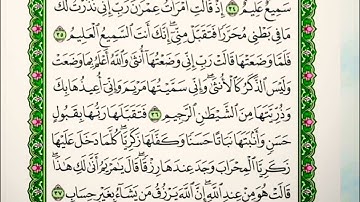 سَمِيعٌ عَلِيمٌ ٣٤ إِذْ قَالَتِ ٱمْرَأَتُ عِمْرَٰنَ رَبِّ إِنِّى نَذَرْتُ لَكَ
مَا فِى بَطْنِى مُحَرَّرًا فَتَقَبَّلْ مِنِّىٓ ۖ إِنَّكَ أَنتَ ٱلسَّمِيعُ ٱلْعَلِيمُ ٣٥
فَلَمَّا وَضَعَتْهَا قَالَتْ رَبِّ إِنِّى وَضَعْتُهَآ أُنثَىٰ وَٱللَّهُ أَعْلَمُ بِمَا وَضَعَتْ
وَلَيْسَ ٱلذَّكَرُ كَٱلْأُنثَىٰ ۖ وَإِنِّى سَمَّيْتُهَا مَرْيَمَ وَإِنِّىٓ أُعِيذُهَا بِكَ
وَذُرِّيَّتَهَا مِنَ ٱلشَّيْطَٰنِ ٱلرَّجِيمِ ٣٦ فَتَقَبَّلَهَا رَبُّهَا بِقَبُولٍ
حَسَنٍ وَأَنۢبَتَهَا نَبَاتًا حَسَنًا وَكَفَّلَهَا زَكَرِيَّا ۖ كُلَّمَا دَخَلَ عَلَيْهَا
زَكَرِيَّا ٱلْمِحْرَابَ وَجَدَ عِندَهَا رِزْقًا ۖ قَالَ يَٰمَرْيَمُ أَنَّىٰ لَكِ هَٰذَا ۖ
قَالَتْ هُوَ مِنْ عِندِ ٱللَّهِ ۖ إِنَّ ٱللَّهَ يَرْزُقُ مَن يَشَآءُ بِغَيْرِ حِسَابٍ ٣٧